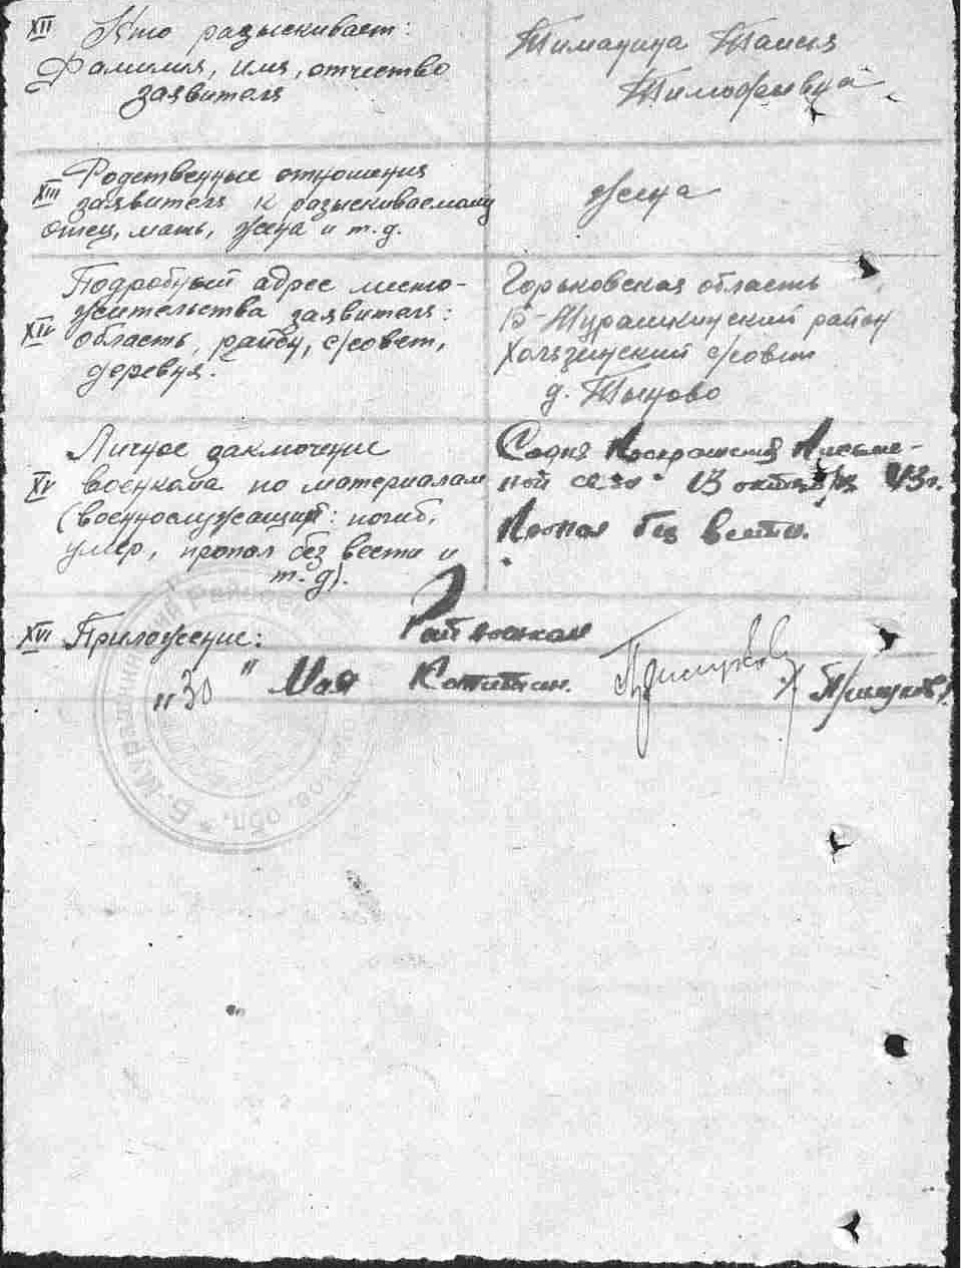 XII Кто разыскивает:
Фамилия, имя, отчество
заявителя
Таисия
Тимофеевна
XIII Родственные отношения
заявителя к разыскиваемому
отец, мать, жена и т.д.
жена
XIV Подробный адрес место-
жительства заявителя:
область, район, с/совет,
деревня.
Горьковская область
Б-Мурашкинский район
с/совет
д. Тыново
XV Личное заключение
военкома по материалам
(военнослужащий: погиб,
умер, пропал без вести и
т.д).
Письме-
ной связи 13 октября 43г.
Пропал без вести.
XVI Приложение:
Райвоенком
"30" Мая Капитан.
Б-Мурашкинский Рай обл.